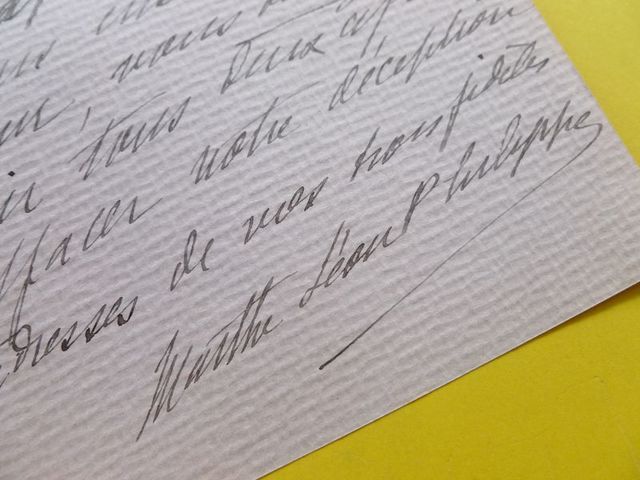 vous
tous deux
effacer notre déception
de vos trois fidèles
Marthe Léon Philippe